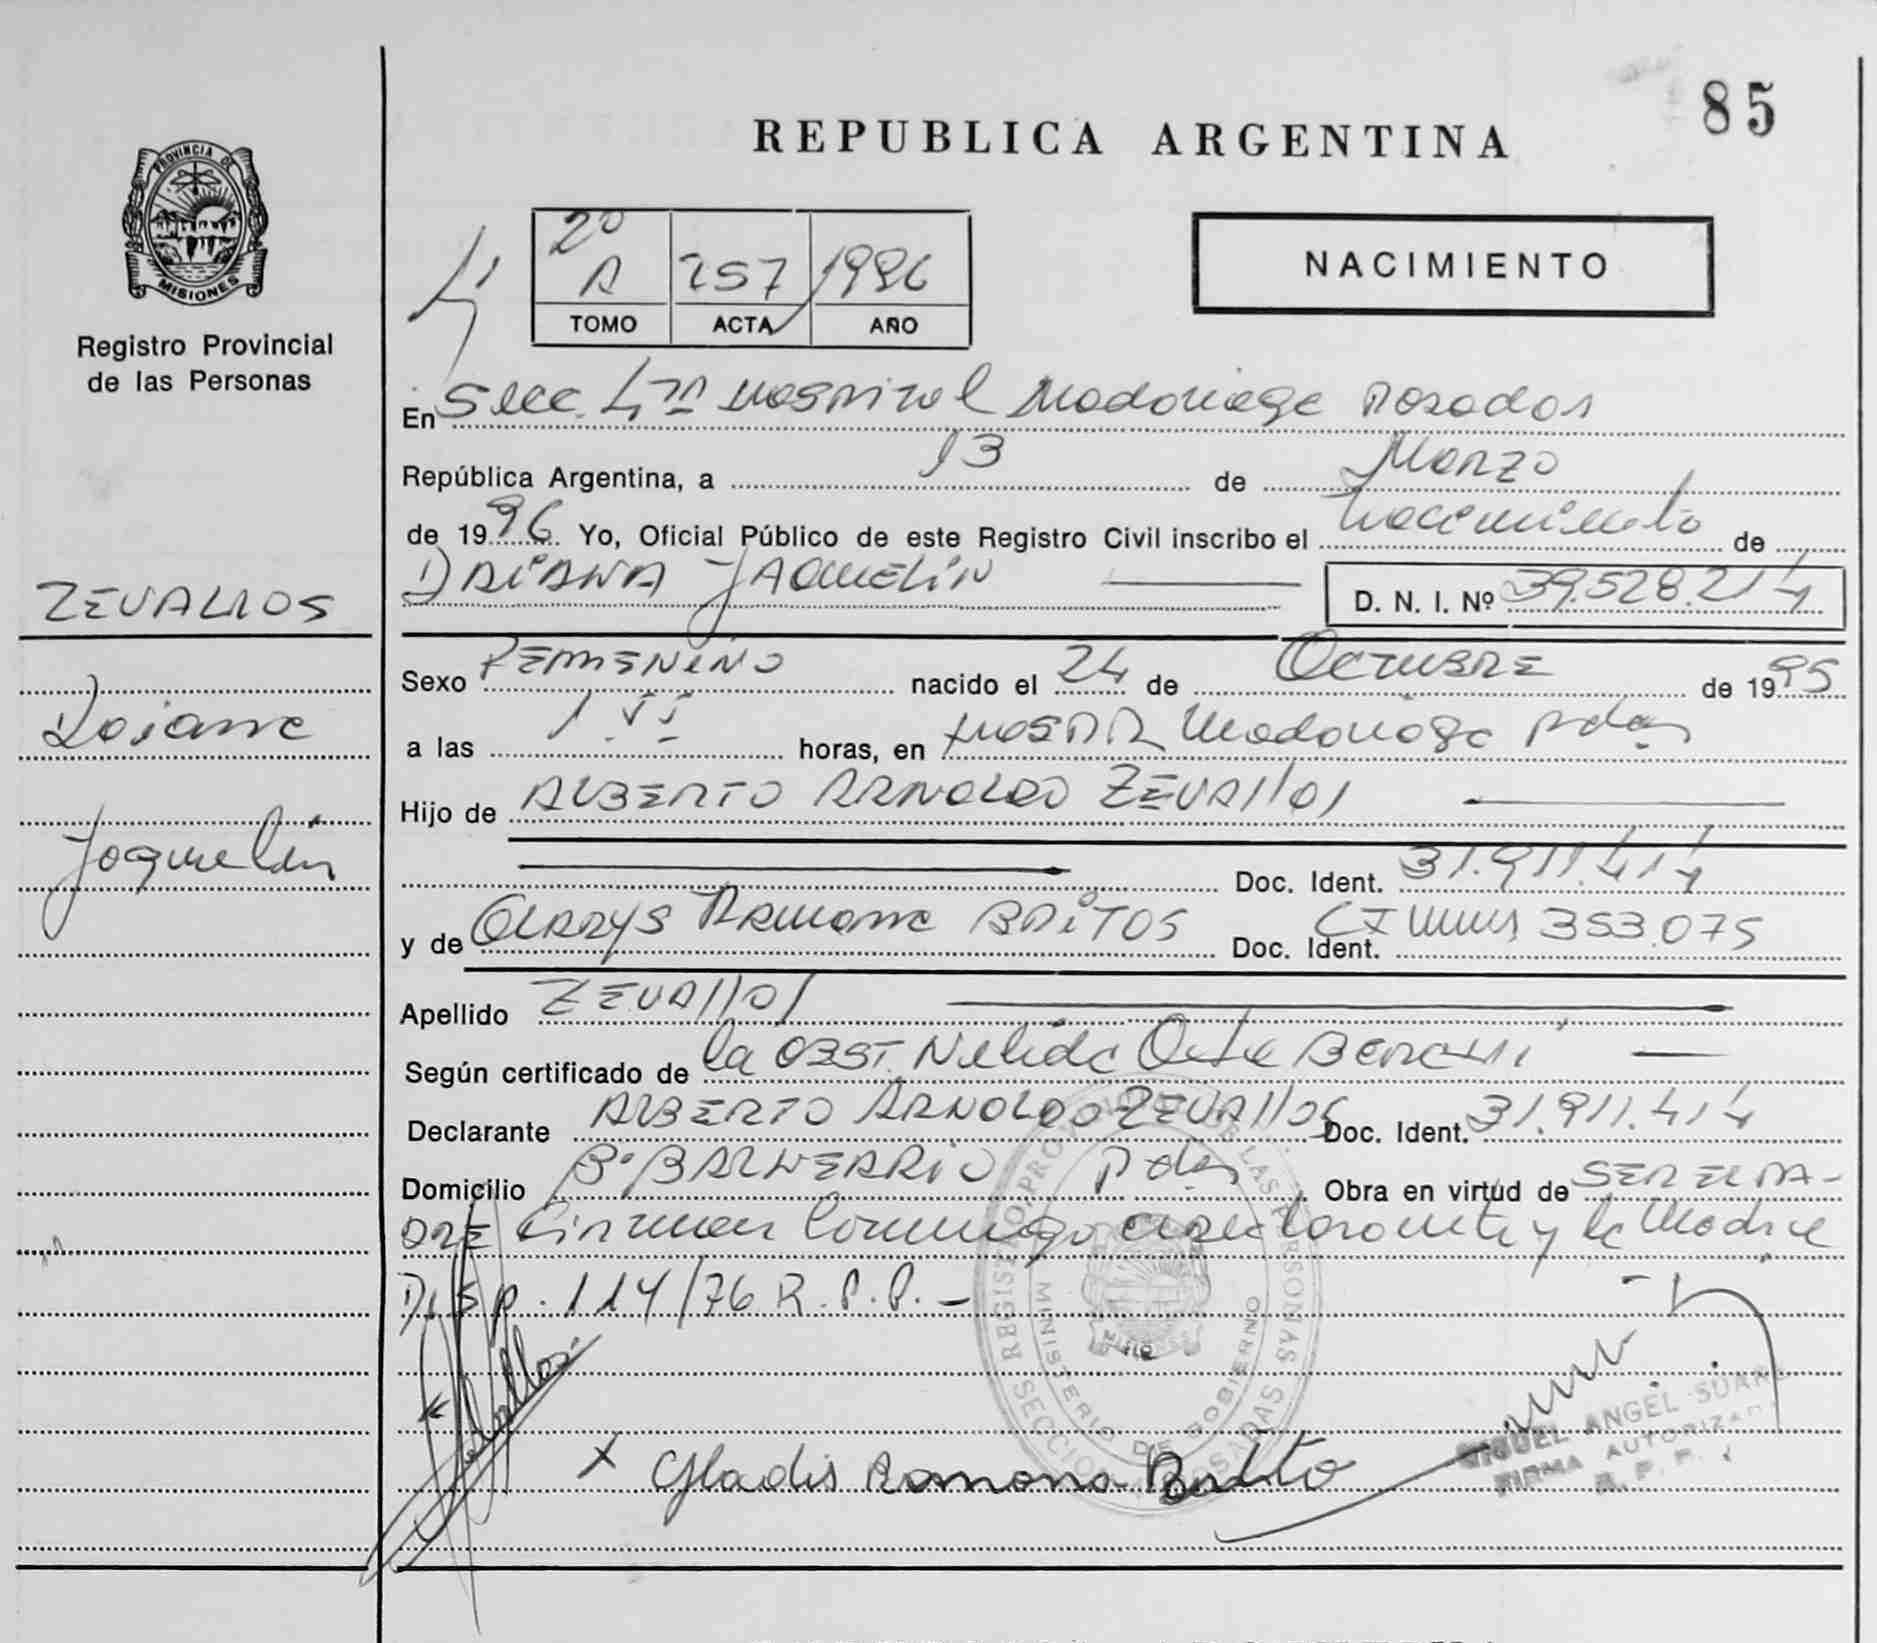 85
REPUBLICA ARGENTINA
PROVINCIA DE
MISIONES
Registro Provincial
de las Personas
2º
A 257 1996
TOMO ACTA AÑO
NACIMIENTO
En Secc. 4ta Hospital Madariaga Posadas
República Argentina, a 13 de Marzo
de 1996 Yo, Oficial Público de este Registro Civil inscribo el Nacimiento de
DAIANA JAQUELIN D. N. I. Nº 39.528.214
ZEVALLOS
Daiana
Jaquelin
Sexo FEMENINO nacido el 24 de OCTUBRE de 1995
a las horas, en Hosp. R. Madariaga Pdas
Hijo de ALBERTO ARNOLDO ZEVALLOS
Doc. Ident. 31.911.414
y de GLADYS Ramona BRITOS Doc. Ident. CI Mnes 353.075
Apellido ZEVALLOS
Según certificado de la OBST. Nelida
Declarante ALBERTO ARNOLDO ZEVALLOS Doc. Ident. 31.911.414
Domicilio Bº BALNEARIO Pdas Obra en virtud de SER EL PA-
DRE Firman conmigo el declarante y la Madre
Disp. 114/76 R.P.P. -
REGISTRO PROVINCIAL DE LAS PERSONAS
MINISTERIO DE GOBIERNO
SECCION POSADAS
MIGUEL ANGEL SUAREZ
FIRMA AUTORIZADA
R. P. P.
x Gladis Ramona Brito